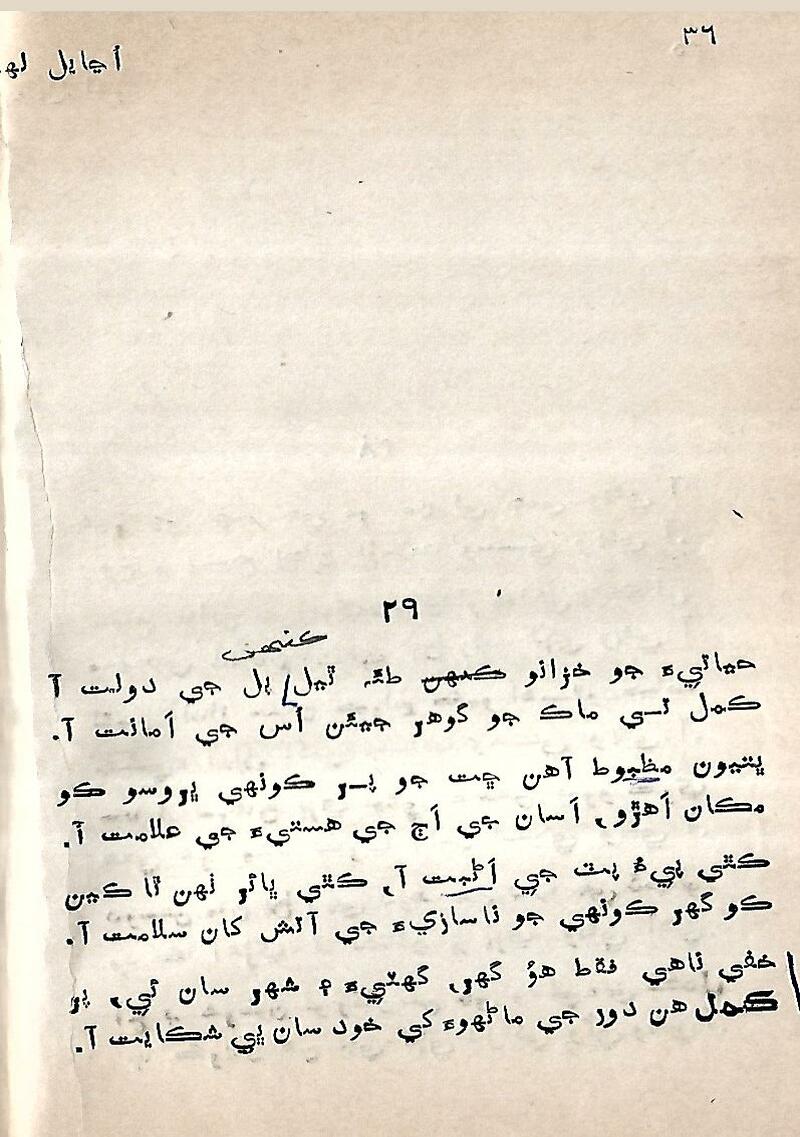 ٣٦
اڃايل لھ
٢٩
ڪنهن
حياتيءَ جو خزانو ڪنهن طئہ ٿيل پل جي دولت آ
ڪمل تسي ماڪ جو گوهر جيئن اُس جي اَمانت آ.
ڀتيون مظبوط آهن ڇت جو پر ڪونهي ڀروسو ڪو
مڪان اَهڙو، اَسان جي اَڄ جي هستيءَ جي علامت آ.
ڪٿي پيءُ پٽ جي اَڻبت آ، ڪٿي ڀائر ٺهن ٿا ڪين
ڪو گهر ڪونهي جو ناسازيءَ جي آتش کان سلامت آ.
خفي ناهي فقط هوُ گهر، گهٽيءَ ۽ شهر سان ئي، پر
ڪمل هن دور جي ماڻهوءَ کي خود سان ڀي شڪايت آ.